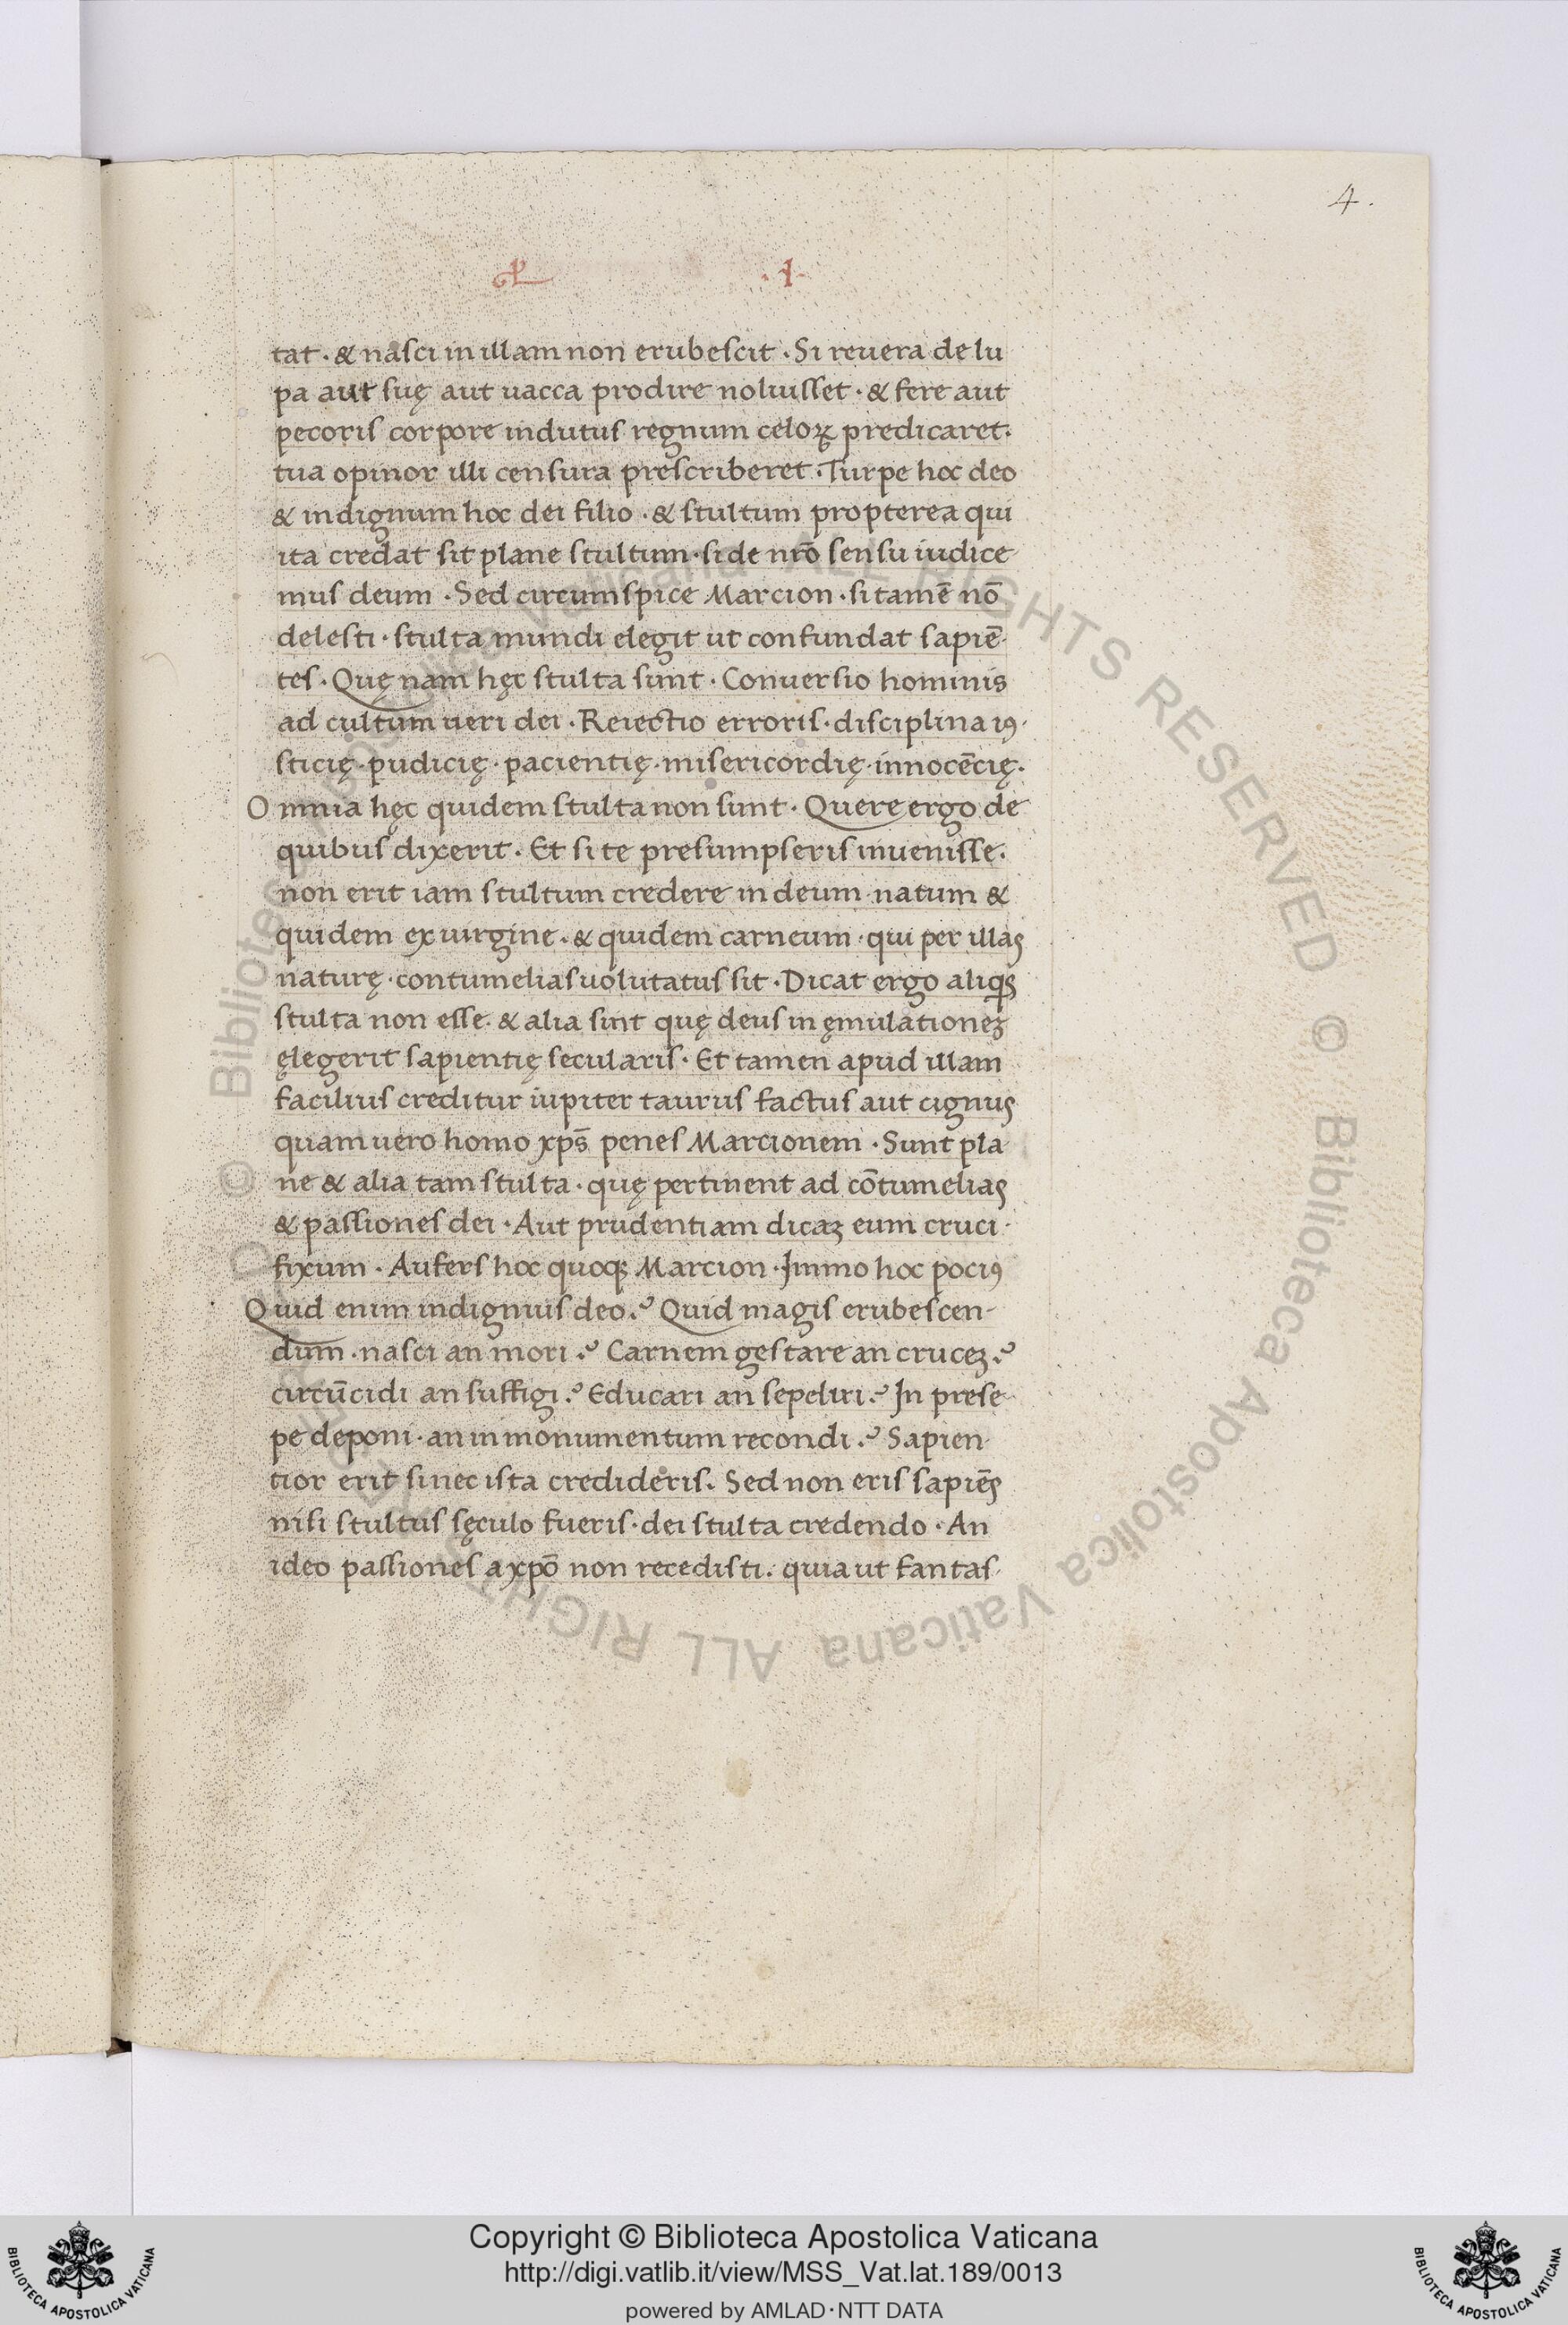 4.
.I.
tat · & nasci in illam non erubescit · Si reuera de lu
pa aut suę aut uacca prodire noluisset · & fere aut
pecoris corpore indutus regnum celoꝝ predicaret.
tua opinor illi censura prescriberet · Turpe hoc deo
& indignum hoc dei filio · & stultum propterea qui
ita credat sit plane stultum · si de nr̄o sensu iudice
mus deum · Sed circumspice Marcion · si tamē nō
delesti · stulta mundi elegit ut confundat sapiē-
tes · Quę nam hęc stulta sunt · Conuersio hominis
ad cultum ueri dei · Reiectio erroris · disciplina iꝯ-
sticię · pudicię · pacientię · misericordię · innocēcię.
Omnia hęc quidem stulta non sunt · Quere ergo de
quibus dixerit · Et si te presumpseris inuenisse.
non erit iam stultum credere in deum natum &
quidem ex uirgine · & quidem carneum · qui per illas
naturę · contumelias uolutatus sit · Dicat ergo aliqꝭ
stulta non esse · & alia sint quę deus in ęmulationeꝫ
ęlegerit sapientię secularis · Et tamen apud illam
facilius creditur iupiter taurus factus aut cignus
quam uero homo xp̄s penes Marcionem · Sunt pla
ne & alia tam stulta · quę pertinent ad cōtumelias
& passiones dei · Aut prudentiam dicaꝫ eum cruci-
fixum · Aufers hoc quoqꝫ Marcion · Immo hoc pociꝯ
Quid enim indignius deo? Quid magis erubescen-
dum · nasci an mori? Carnem gestare an cruceꝫ?
circūcidi an suffigi? Educari an sepeliri? In prese-
pe deponi · an in monumentum recondi? Sapien-
tior erit si nec ista credideris. Sed non eris sapiēs
nisi stultus sęculo fueris · dei stulta credendo · An
ideo passiones a xp̄o non recedisti. quia ut fantas-
© Biblioteca Apostolica Vaticana ALL RIGHTS RESERVED © Biblioteca Apostolica Vaticana ALL RIGHTS RESERVED
Copyright © Biblioteca Apostolica Vaticana
http://digi.vatlib.it/view/MSS_Vat.lat.189/0013
powered by AMLAD · NTT DATA
BIBLIOTECA APOSTOLICA VATICANA
BIBLIOTECA APOSTOLICA VATICANA